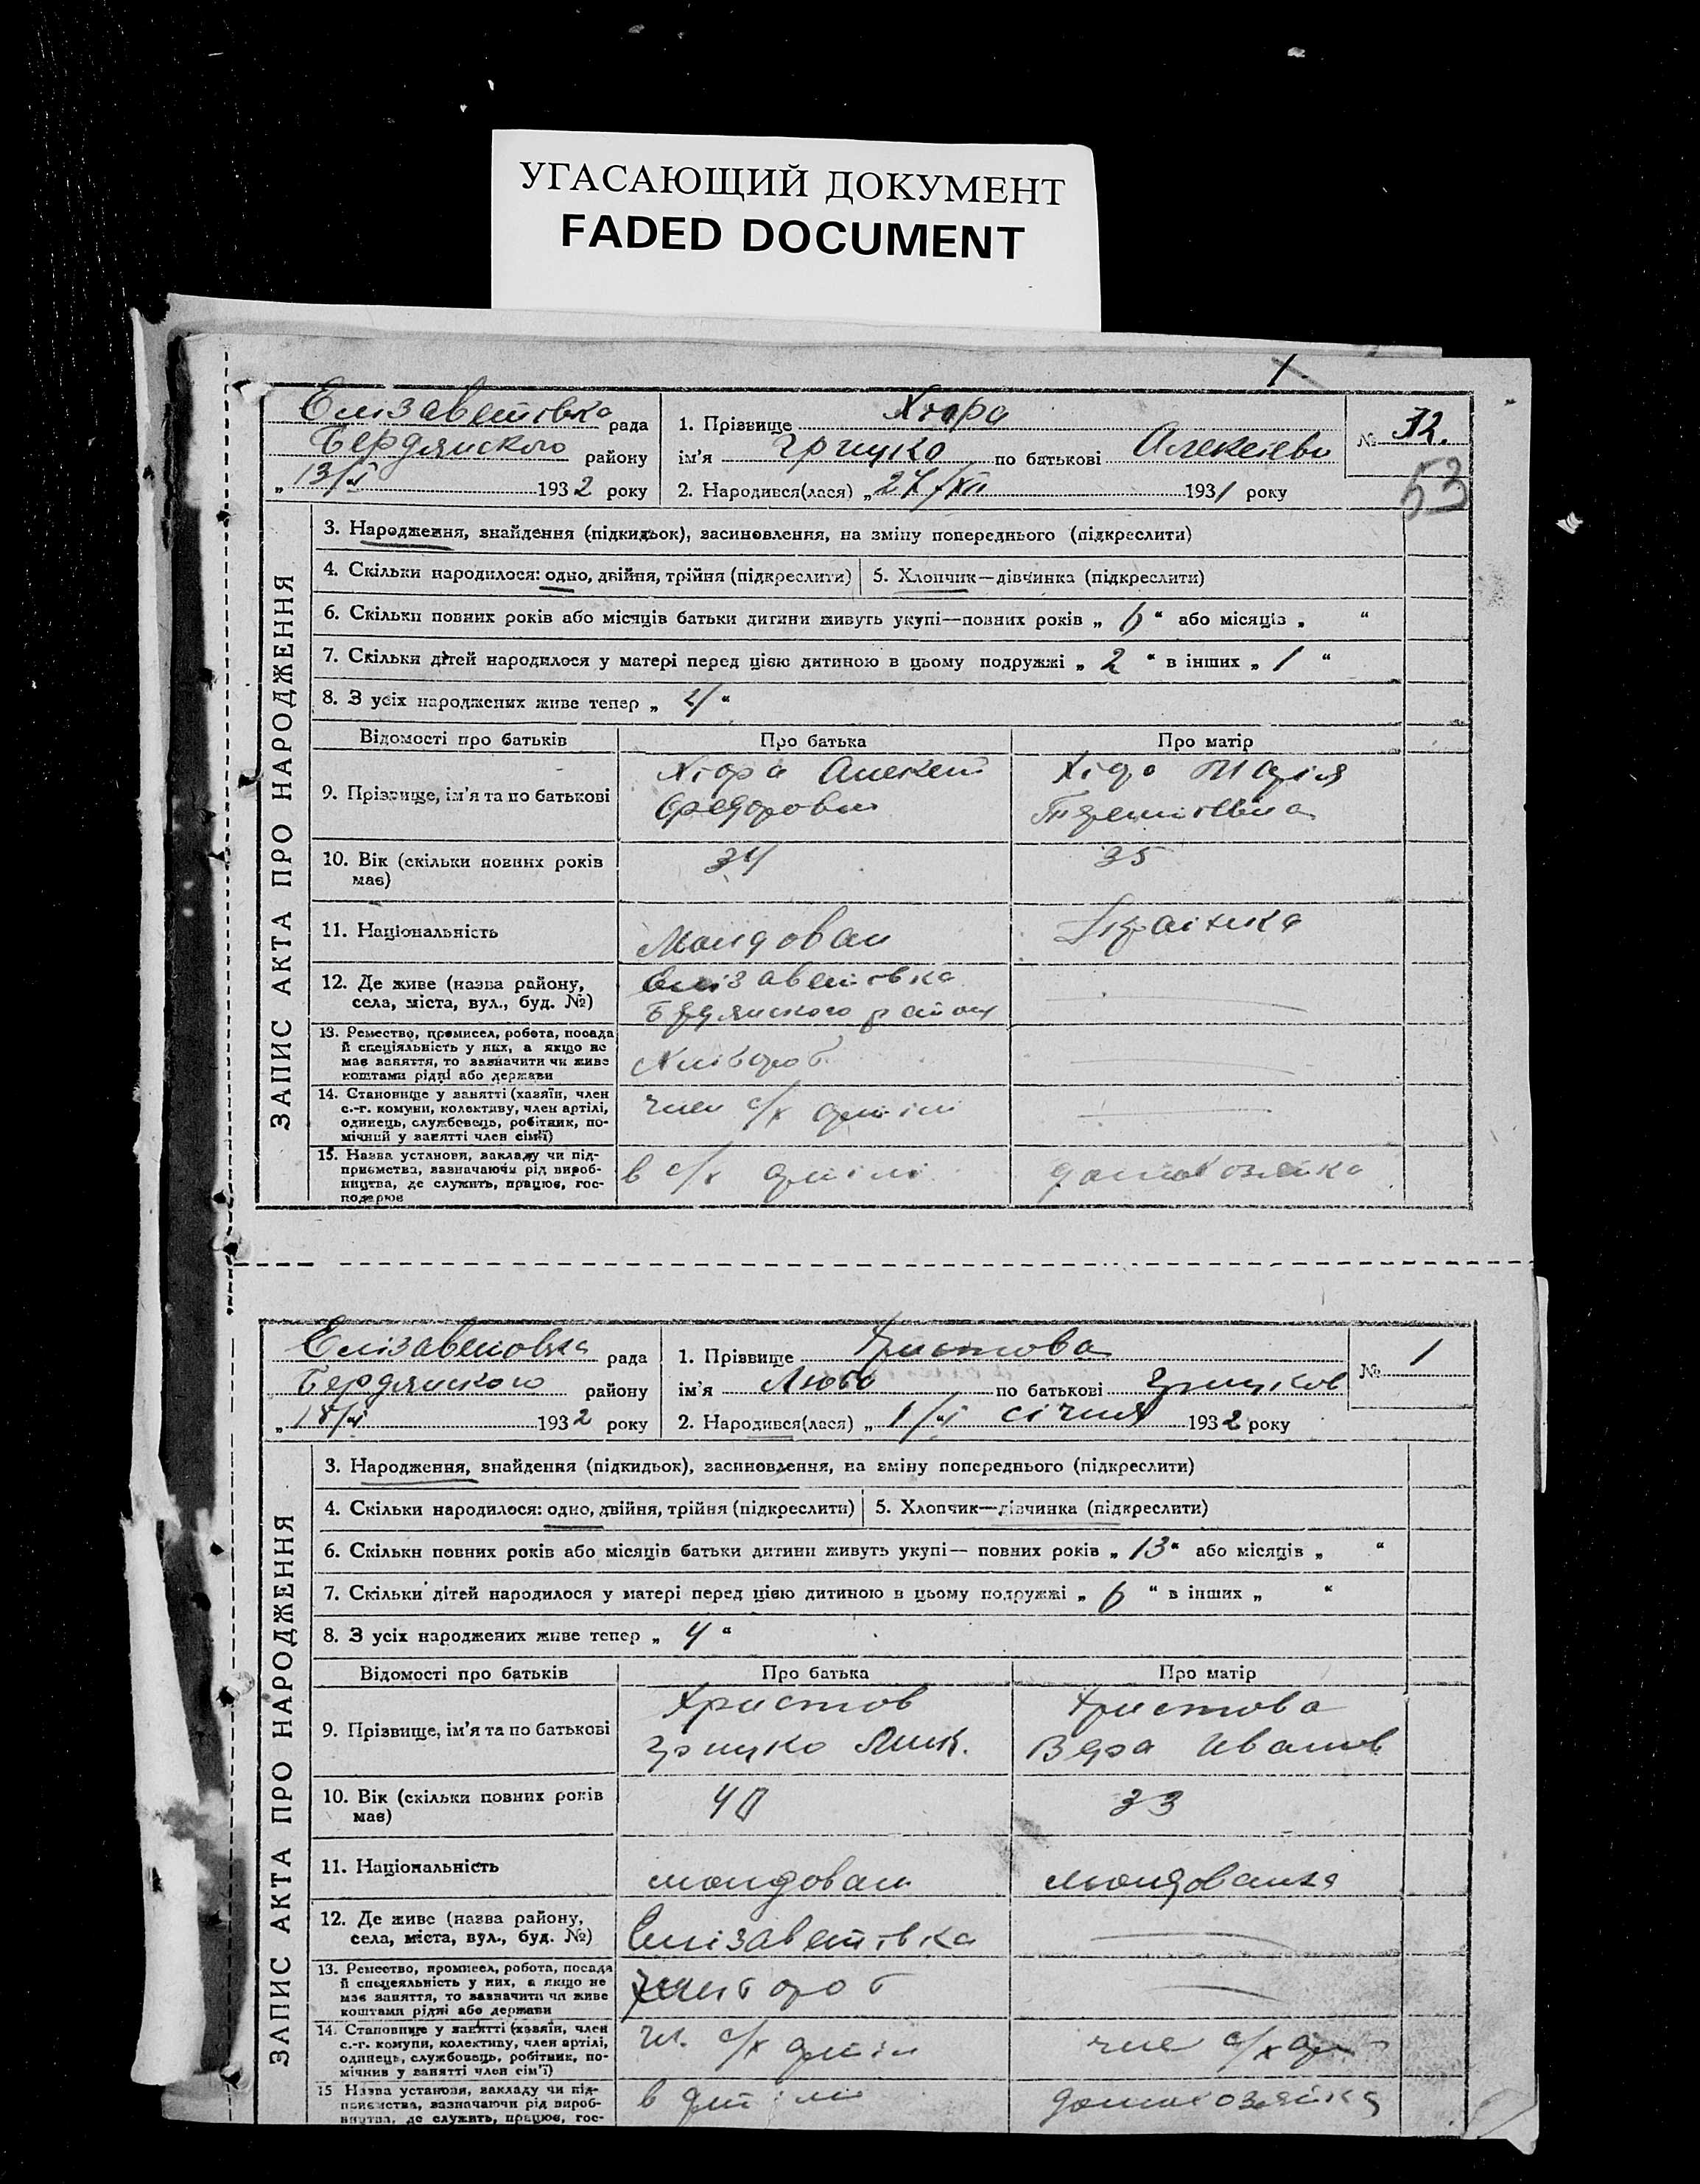 УГАСАЮЩИЙ ДОКУМЕНТ
FADED DOCUMENT
Елізаветівка рада
Бердянського району
„13/I 1932 року
1. Прізвище Хіора
ім'я Грицко по батькові Алексієви
2. Народився(лася) „27/XII 1931 року
№ 32.
53
ЗАПИС АКТА ПРО НАРОДЖЕННЯ
3. Народження, знайдення (підкидьок), засиновлення, на зміну попереднього (підкреслити)
4. Скільки народилося: одно, двійня, трійня (підкреслити) 5. Хлопчик—дівчинка (підкреслити)
6. Скільки повних років або місяців батьки дитини живуть укупі—повних років „ 6 “ або місяців „ “
7. Скільки дітей народилося у матері перед цією дитиною в цьому подружжі „ 2 “ в інших „ 1 “
8. З усіх народжених живе тепер „ 4 “
Відомості про батьків Про батька Про матір
9. Прізвище, ім'я та по батькові
Хіора Алексей
Федорови
Хіора Марія
10. Вік (скільки повних років має) 34 35
11. Національність Молдован Украінка
12. Де живе (назва району, села, міста, вул., буд. №)
Елізаветівка
Бердянского району
13. Ремество, промисел, робота, посада
й спеціяльність у них, а якщо не
має заняття, то зазначити чи живе
коштами рідні або держави
Хлібороб
14. Становище у занятті (хазяїн, член
с.-г. комуни, колективу, член артілі,
одинець, службовець, робітник, по-
мічний у занятті член сім'ї)
член с/х артілі
15. Назва установи, закладу чи під-
приємства, зазначаючи рід вироб-
ництва, де служить, працює, гос-
подарює
в с/х артілі домохозяйка
Елізаветовка рада
Бердянского району
„18/I 1932 року
1. Прізвище Христова
ім'я Любо по батькові Грицков
2. Народився(лася) „ 1/I січня 1932 року
№ 1
ЗАПИС АКТА ПРО НАРОДЖЕННЯ
3. Народження, знайдення (підкидьок), засиновлення, на зміну попереднього (підкреслити)
4. Скільки народилося: одно, двійня, трійня (підкреслити) 5. Хлопчик—дівчинка (підкреслити)
6. Скільки повних років або місяців батьки дитини живуть укупі— повних років „ 13 “ або місяців „ “
7. Скільки дітей народилося у матері перед цією дитиною в цьому подружжі „ 6 “ в інших „ “
8. З усіх народжених живе тепер „ 4 “
Відомості про батьків Про батька Про матір
9. Прізвище, ім'я та по батькові
Христов
Грицко Мик.
Христова
Вера Иванов
10. Вік (скільки повних років має) 40 33
11. Національність молдован молдованка
12. Де живе (назва району, села, міста, вул., буд. №)
Елізаветівка
13. Ремество, промисел, робота, посада
й спеціяльність у них, а якщо не
має заняття, то зазначити чи живе
коштами рідні або держави
Хлібороб
14. Становище у занятті (хазяїн, член
с.-г. комуни, колективу, член артілі,
одинець, службовець, робітник, по-
мічник у занятті член сім'ї)
чл. с/х артілі член с/х арт
15 Назва установи, закладу чи під-
приємства, зазначаючи рід вироб-
ництва, де служить, працює, гос-
в артілі домохозяйка